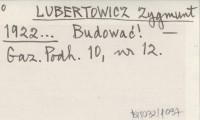 LUBERTOWICZ Zygmunt
1922... Budować! —
Gaz. Podh. 10, nr 12.